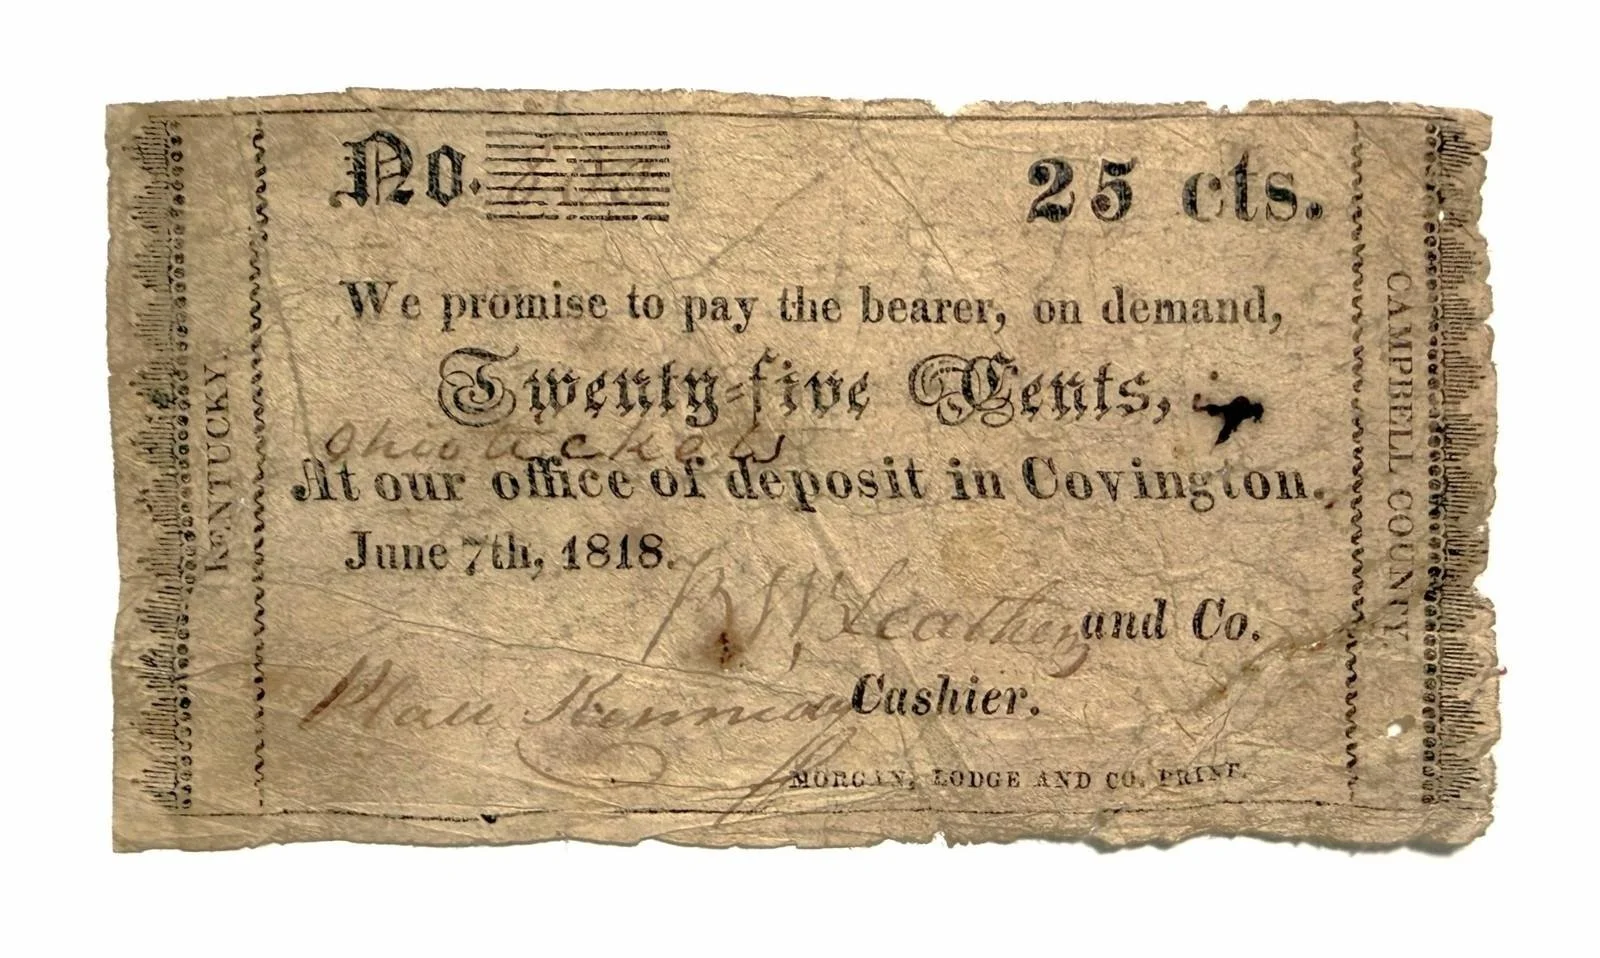 No.
25 cts.
We promise to pay the bearer, on demand,
Twenty-five Cents,
Ohio tickets
At our office of deposit in Covington.
June 7th, 1818.
Leathers and Co.
Kennedy Cashier.
MORGAN, LODGE AND CO. PRINT.
KENTUCKY.
CAMPBELL COUNTY.